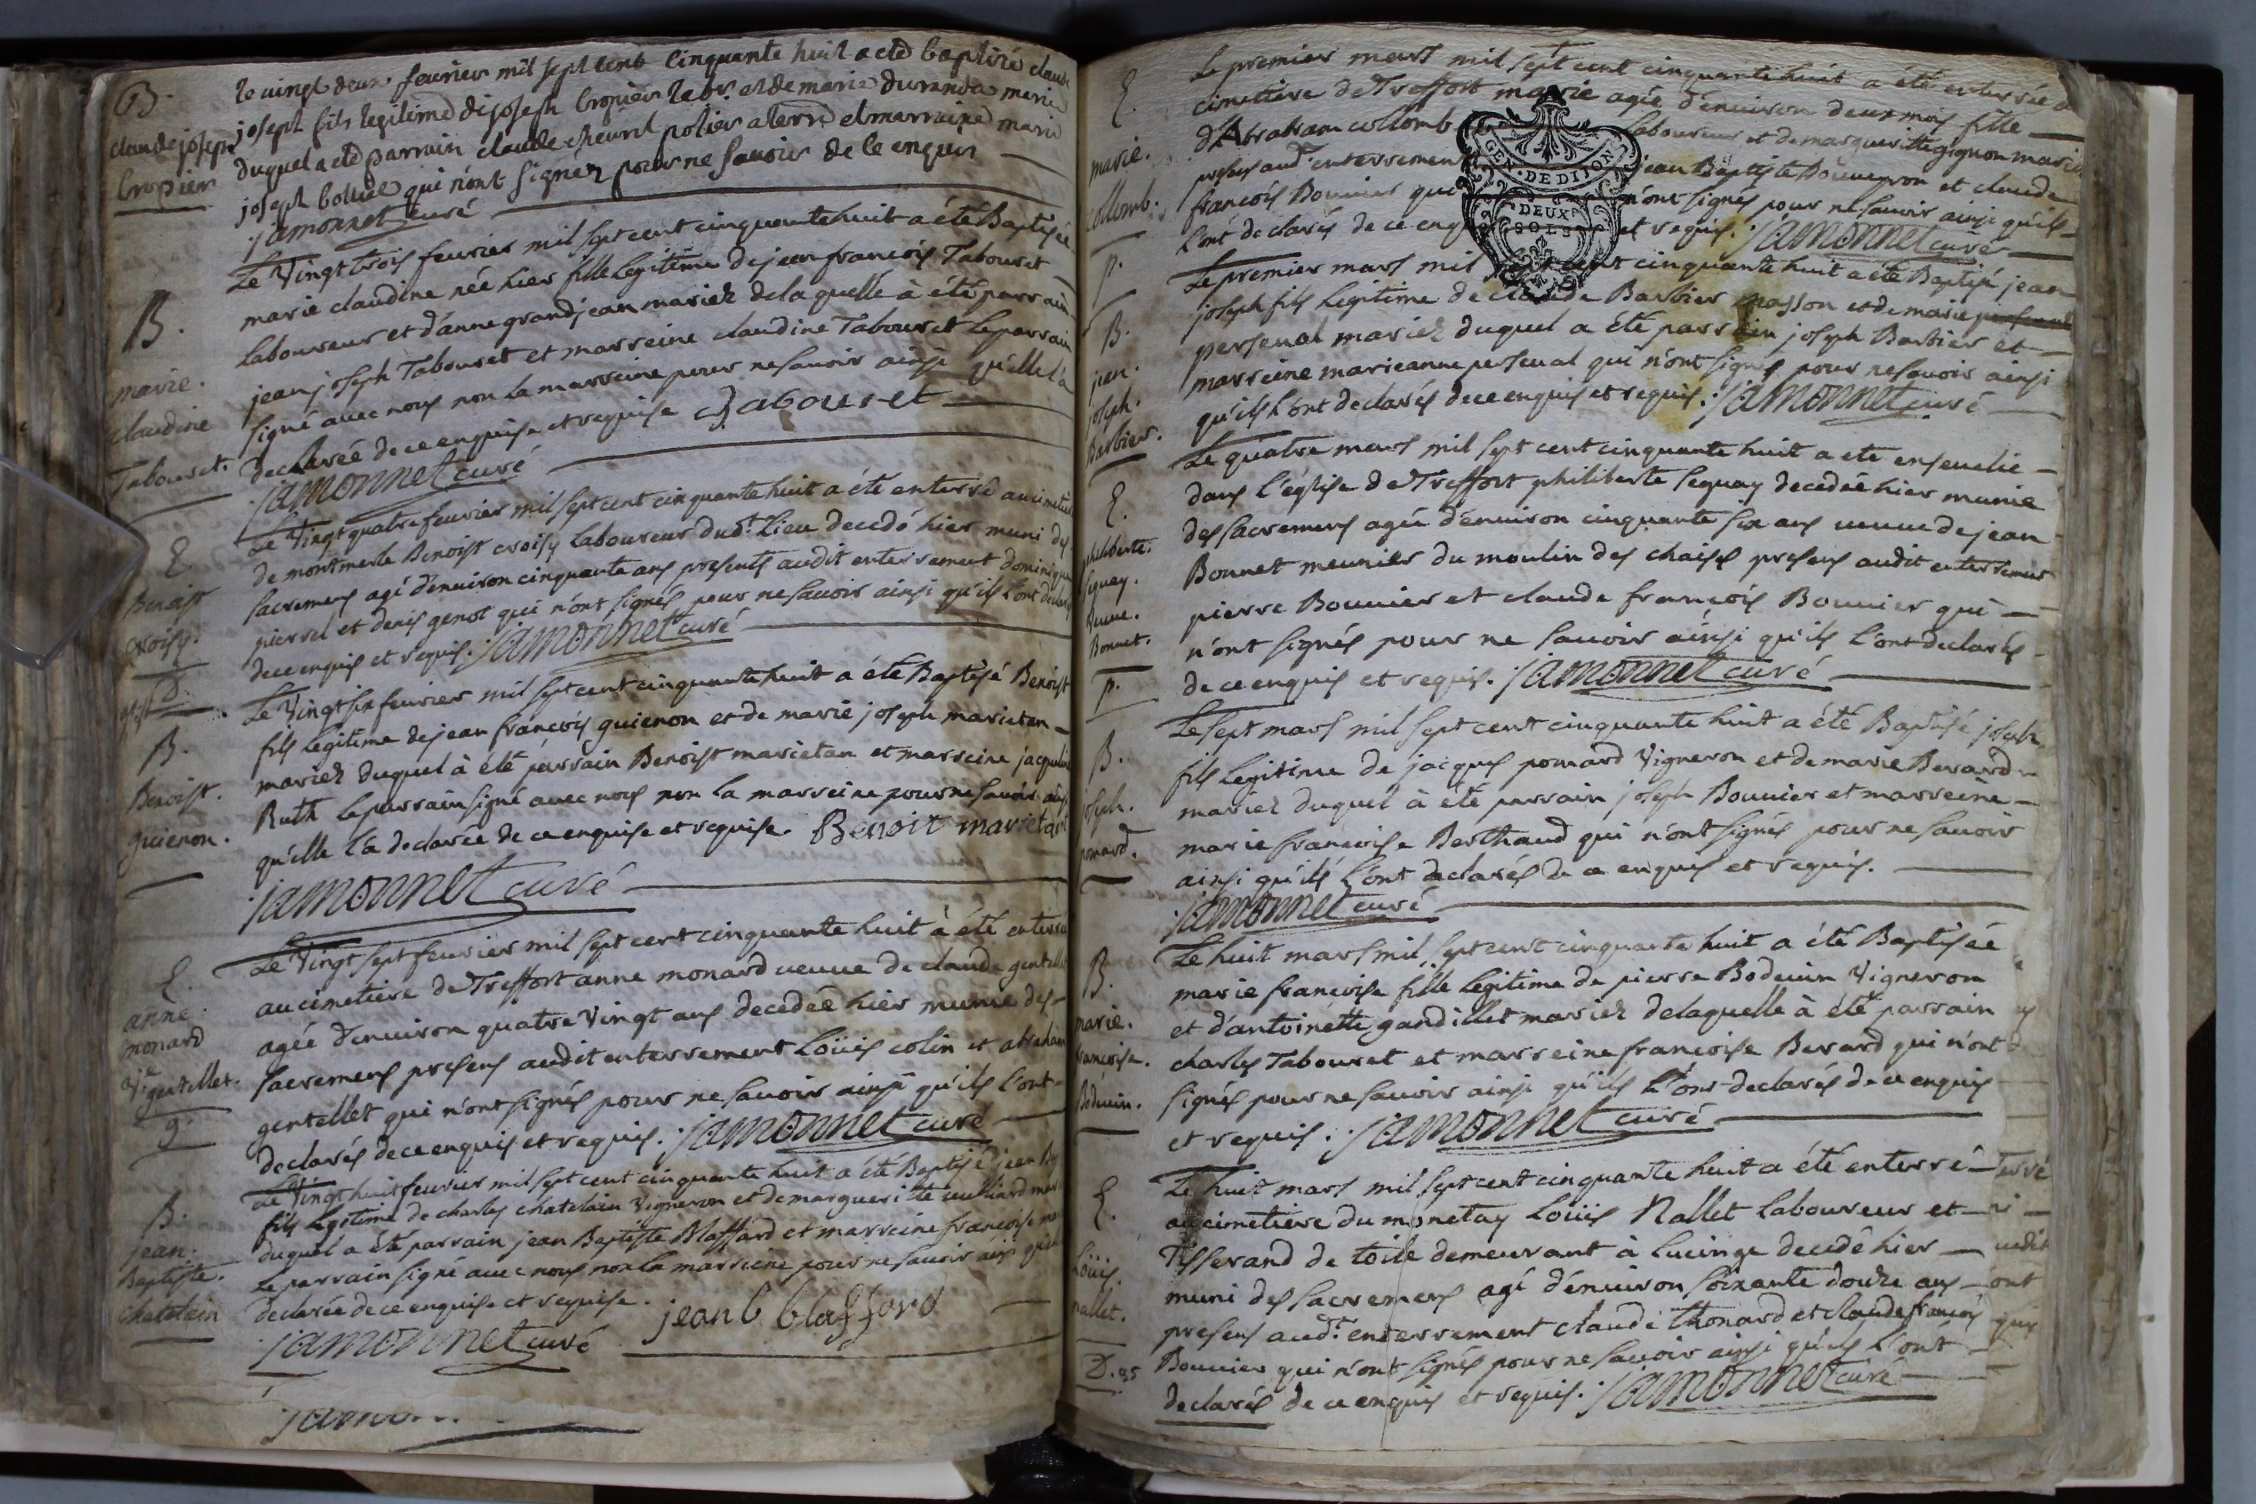 B.
claude joseph
bropier
le vingt deux fevrier mil sept cent cinquante huit a eté baptizé claude
joseph fils legitime de joseph bropier labr. et de marie duranda marié
duquel a eté parrain claude chevril potier a terre et marraine marie
joseph qui n'ont signéz pour ne savoir de ce enquis
jamonnet curé
B.
marie.
claudine
Tabouret.
Le Vingt trois fevrier mil sept cent cinquante huit a été Baptisée
marie claudine née hier fille legitime de jean françois Tabouret
laboureur et d'anne grandjean mariez de laquelle à été parrain
jean joseph Tabouret et marreine claudine Tabouret le parrain
signé avec nous non la marreine pour ne savoir ainsi qu'elle l'a
declarée de ce enquise et requise Tabouret
jamonnet curé
E.
Benoist
croisy.
Le Vingt quatre fevrier mil sept cent cinquante huit a été enterré au cimetiere
de montmerle Benoist croisy laboureur dud.t lieu decedé hier muni des
sacremens agé d'environ cinquante ans presents audit enterrement dominique
pierrel et denis genot qui n'ont signés pour ne savoir ainsi qu'ils l'ont declaré
de ce enquis et requis. jamonnet curé
B.
Benoist.
guienon.
Le Vingt six fevrier mil sept cent cinquante huit a été Baptisé Benoist
fils legitime de jean françois guienon et de marie joseph marietan
mariez duquel à été parrain Benoist marietan et marreine jacqueline
Ruth le parrain signé avec nous non la marreine pour ne savoir ainsi
qu'elle l'a declarée de ce enquise et requise. Benoit marietant
jamonnet curé
E.
anne.
monard
gentellet.
Le Vingt sept fevrier mil sept cent cinquante huit à été enterrée
au cimetiere de Treffort anne monard veuve de claude gentellet
agée d'environ quatre Vingt ans decedée hier munie des
sacremens presens audit enterrement Loüis colin et abraham
gentellet qui n'ont signés pour ne savoir ainsi qu'ils l'ont
declarés de ce enquis et requis. jamonnet curé
B.
jean.
Baptiste.
chatelain
Le Vingt huit fevrier mil sept cent cinquante huit a été Baptisé jean Bap
fils legitime de charles chatelain Vigneron et de marguerite vulliard mari
duquel a été parrain jean Baptiste Blaffard et marreine françoise
Le parrain signé avec nous non la marreine pour ne savoir ainsi qu'elle
declarée de ce enquise et requise. jean b blaffard
jamonnet curé
jamon..
E.
marie.
collomb.
p.
Le premier mars mil sept cent cinquante huit a été enterrée au
cimetiere de Treffort marie agée d'environ deux mois fille
d'Abraham collomb laboureur et de marguerite gignon mariez
presens aud.t enterrement jean Baptiste Bouveyron et claude
françois Bouvier qui n'ont signés pour ne savoir ainsi qu'ils
l'ont declarés de ce enquis et requis. jamonnet curé
GEN. DE DIJON
DEUX
SOLS
B.
jean.
joseph.
Barbier.
Le premier mars mil sept cent cinquante huit a été Baptisé jean
joseph fils legitime de claude Barbier masson et de marie
perseval mariez duquel a été parrain joseph Barbier et
marreine marieanne perseval qui n'ont signés pour ne savoir ainsi
qu'ils l'ont declarés de ce enquis et requis. jamonnet curé
E.
philiberte.
seguay.
veuve.
Bonnet.
p.
Le quatre mars mil sept cent cinquante huit a eté ensevelie
dans l'église de Treffort philiberte seguay decedée hier munie
des sacremens agée d'environ cinquante six ans veuve de jean
Bonnet meunier du moulin des chaises presens audit enterrement
pierre Bouvier et claude françois Bouvier qui
n'ont signés pour ne savoir ainsi qu'ils l'ont declarés
de ce enquis et requis. jamonnet curé
B.
joseph.
pomard.
Le sept mars mil sept cent cinquante huit a été Baptisé joseph
fils legitime de jacques pomard Vigneron et de marie Berard
mariez duquel à été parrain joseph Bouvier et marreine
marie françoise Berthaud qui n'ont signés pour ne savoir
ainsi qu'ils l'ont declarés de ce enquis et requis.
jamonnet curé
B.
marie.
françoise.
Boduin.
Le huit mars mil sept cent cinquante huit a été Baptisée
marie françoise fille legitime de pierre Boduin Vigneron
et d'antoinette gandillet mariez de laquelle à été parrain
charles Tabouret et marreine françoise Berard qui n'ont
signés pour ne savoir ainsi qu'ils l'ont declarés de ce enquis
et requis. jamonnet curé
E.
Loüis.
nallet.
D. 95
Le huit mars mil sept cent cinquante huit a été enterré
au cimetiere du monetay Loüis Nallet laboureur et
Tisserand de toile demeurant à Lucinge decedé hier
muni des sacremens agé d'environ soixante douze ans
presens aud.t enterrement claude thonard et claude françois
Bouvier qui n'ont signés pour ne savoir ainsi qu'ils l'ont
declarés de ce enquis et requis. jamonnet curé